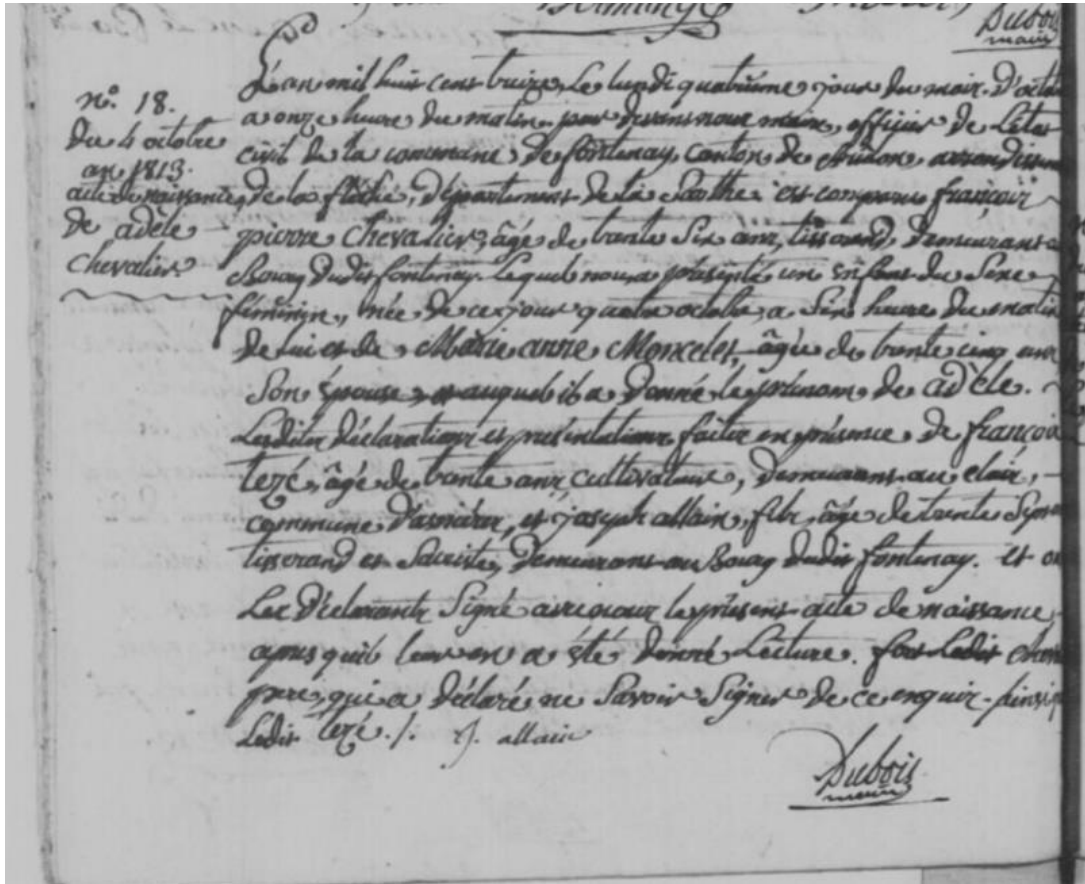 Dubois
maire
n°. 18.
du 4 octobre
an 1813.
acte de naissance
de adèle
chevalier
L'an mil huit cent treize, Le lundi quatrième jour du mois d'octo
a onze heure du matin par devant nous maire, officier de L'état
civil de la commune de fontenay, canton de Brûlon, arrondissem
de la flèche, Département de la Sarthe est comparu françois
pierre chevalier, âgé de trente Six ans, tisserand, Demeurant a
Bourg dudit fontenay. Lequel nous a présenté un Enfant du Sexe
féminin, née de ce jour quatre octobre, a Six heure du matin
de lui et de Marie anne Moncelet, âgée de trente cinq ans
Son Epouse, auquel il a Donné le prénom de adèle.
Lesdites Déclarations et présentations faites en présence de françois
lezé, âgé de trente ans, cultivateur, Demeurant au
commune D'asnières, et joseph allain, fils, âgé de trente Sept
tisserand et Saciste, Demeurant au Bourg dudit fontenay. et o
Les Déclarants Signé avec nous le présent acte de naissance,
apres quil leur en a été Donné Lecture. fors Ledit
pere, qui a déclaré ne Savoir Signer de ce enquis. ainsi
Ledit lezé ./. J. allain
Dubois
maire